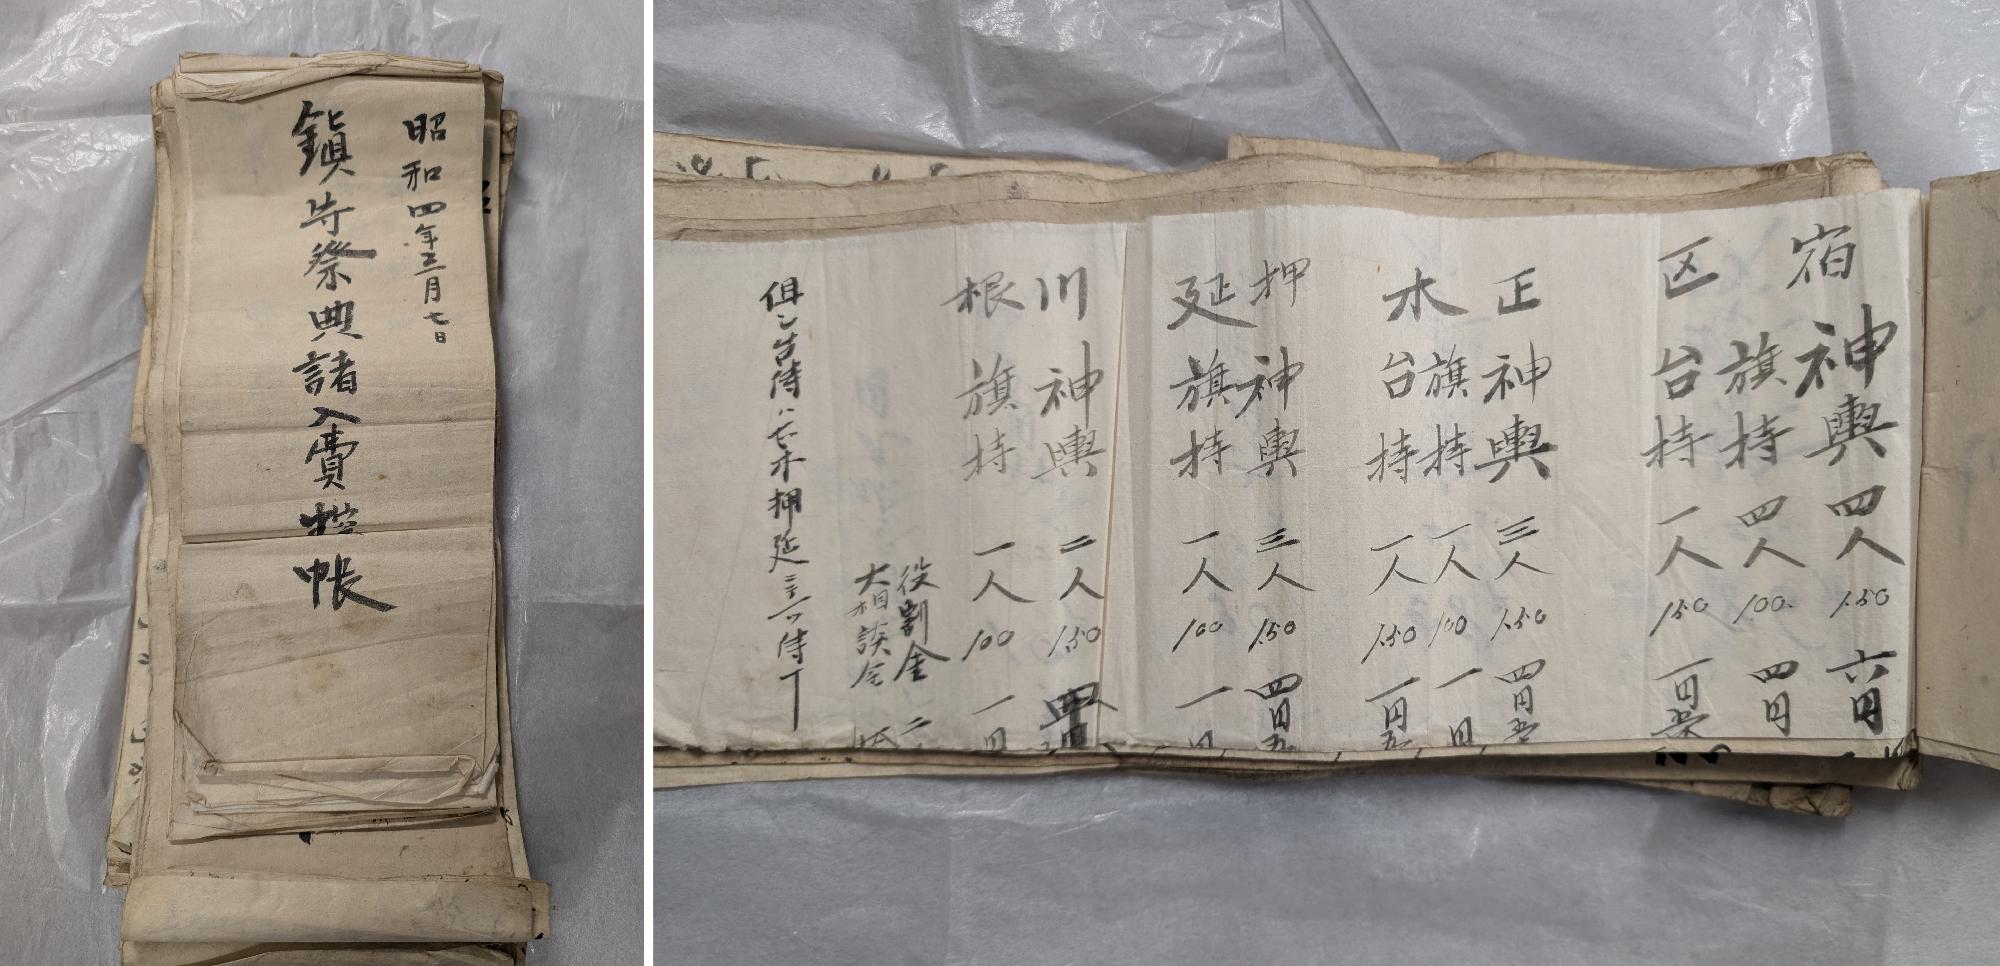 昭和四年三月七日
鎮守祭典諸入費控
帳
宿 神輿 四人 1.50 六円
旗持 四人 1.00 四円
区 台持 一人 1.50 一円五
正 神輿 三人 1.50 四円五
旗持 一人 100 一円
木 台持 一人 1.50 一円五
押 神輿 三人 1.50 四円五
延 旗持 一人 100 一円
川 神輿 二人 1.50
根 旗持 一人 100 一円
役割金 二
大相談金
但シ台持ハ正木押延ニテ一ツ持